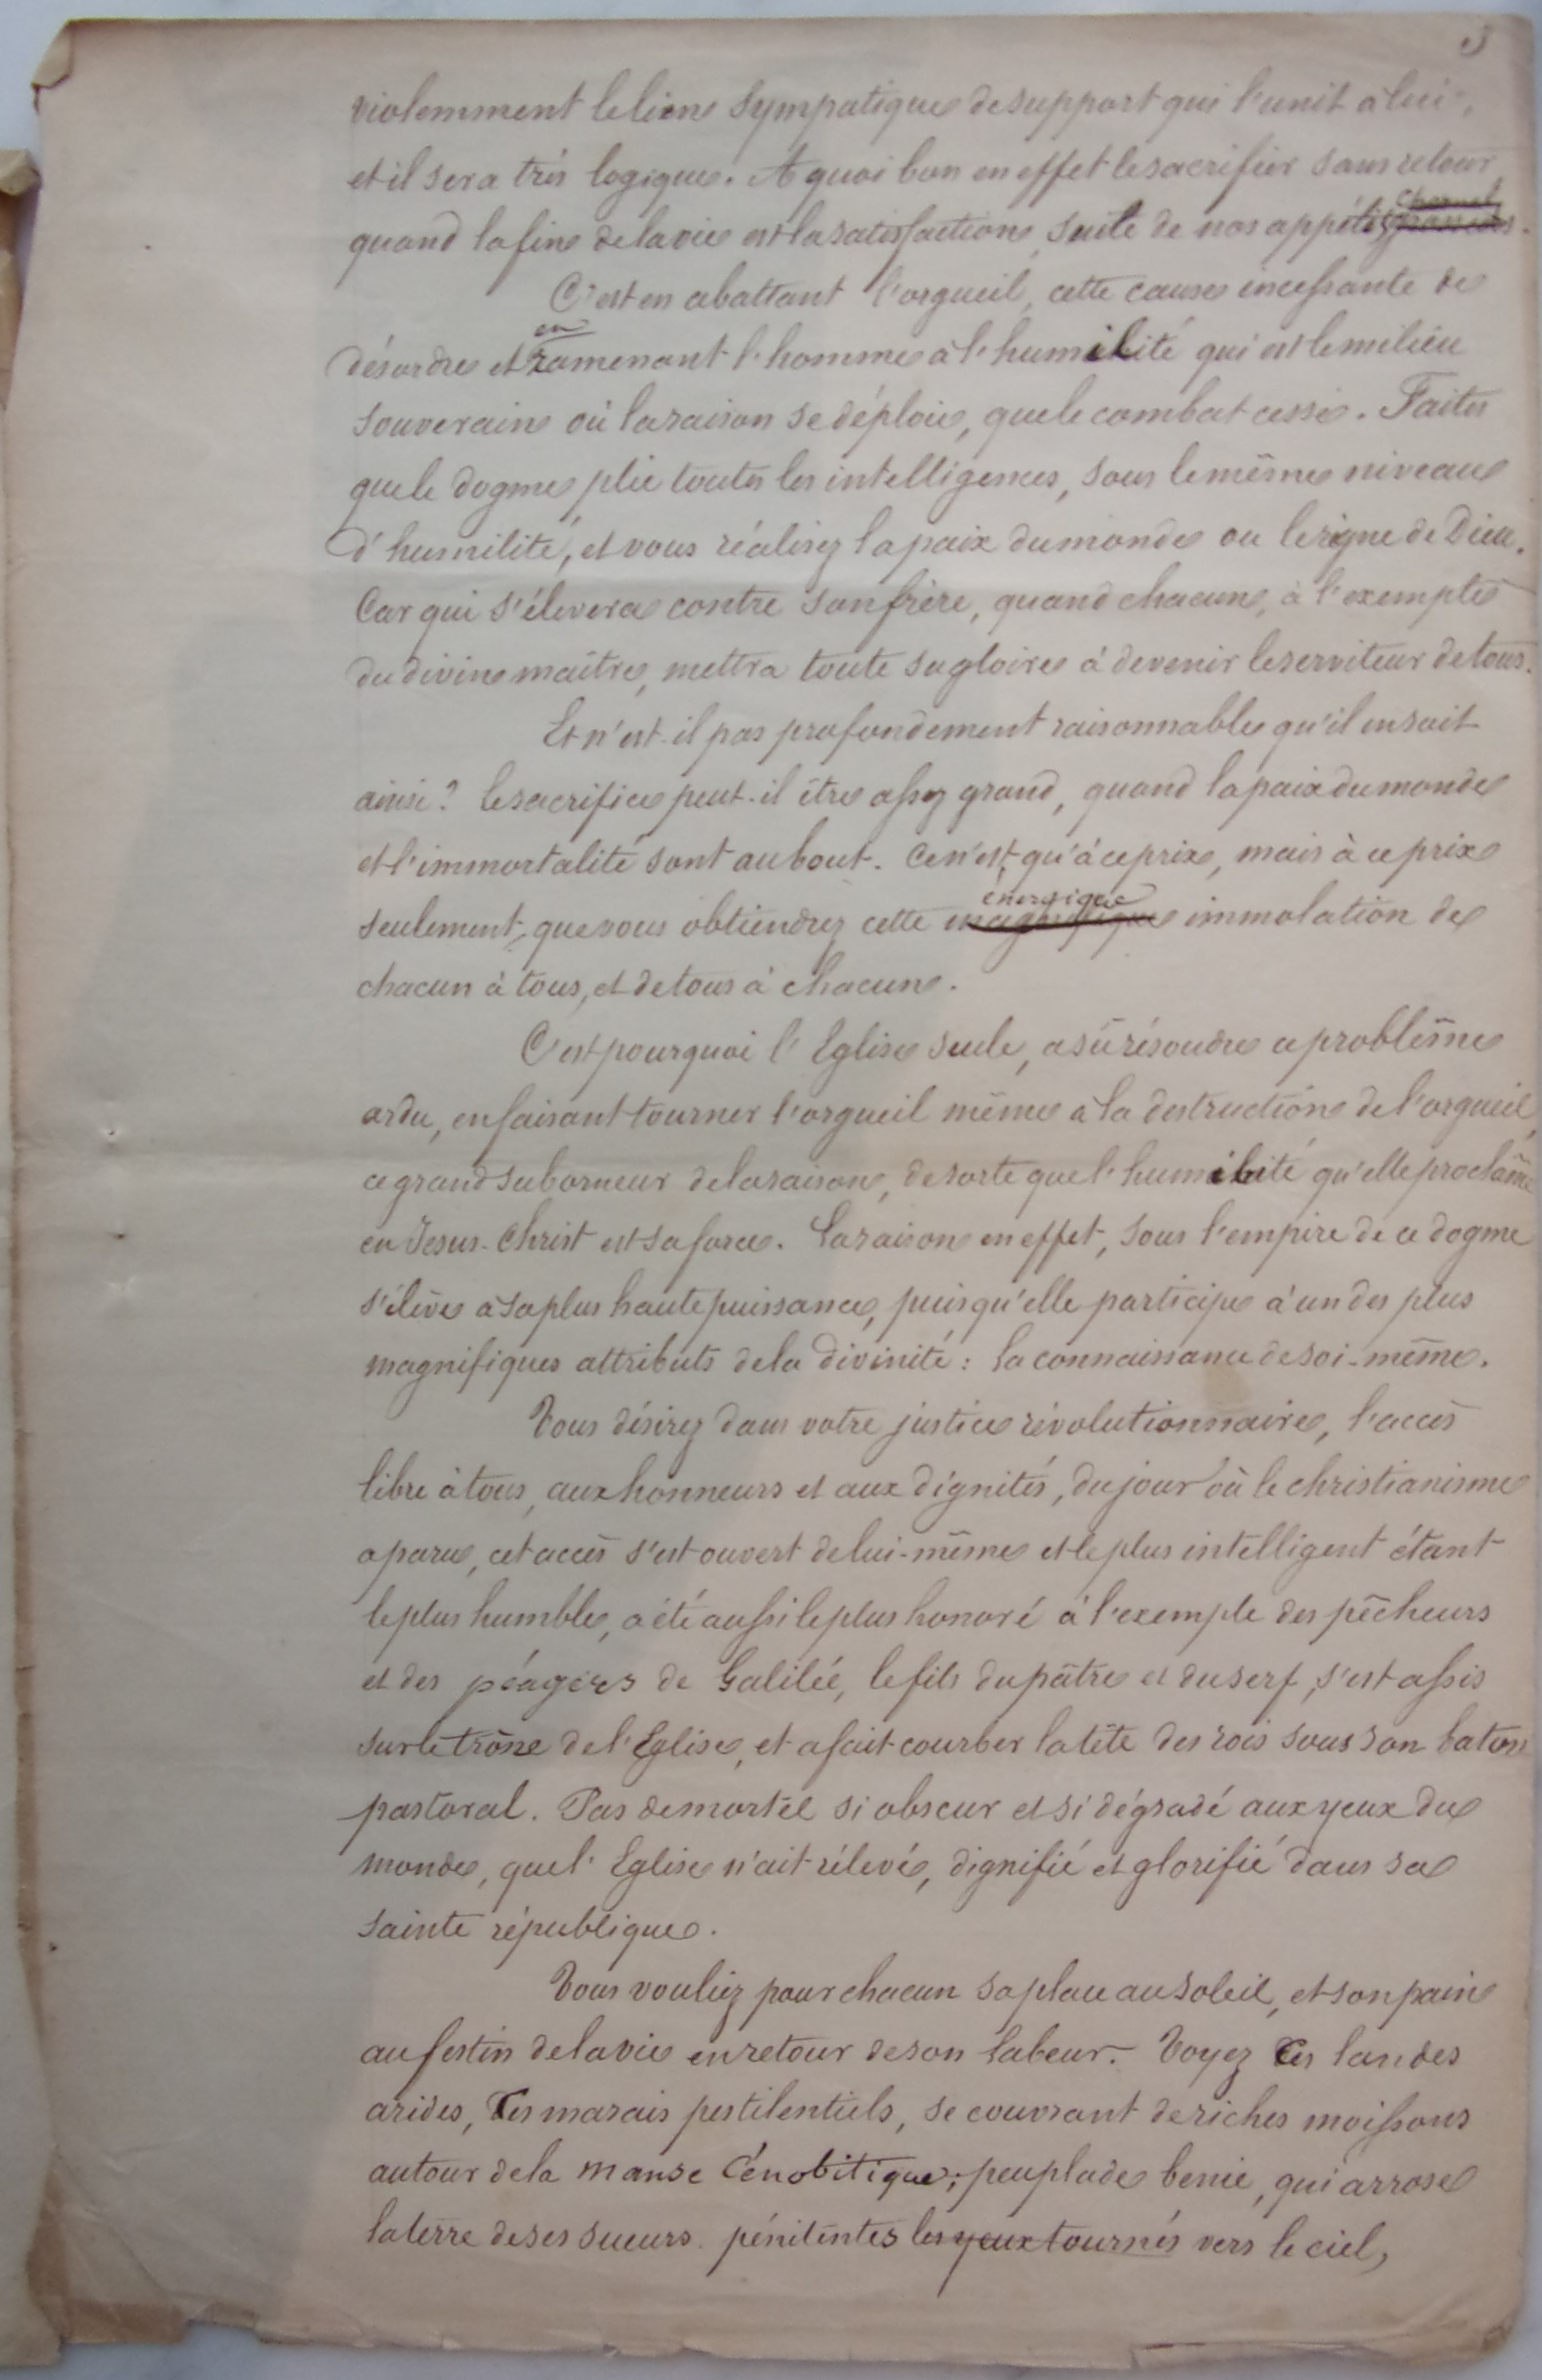 3
violemment le lien sympatique de support qui l'unit à lui,
et il sera très logique. A quoi bon en effet le sacrifier sans retour
quand la fin de la vie est la satisfaction, seule de nos appétits charnels.
C'est en abattant l'orgueil, cette cause incessante de
désordre et en ramenant l'homme à l'humilité qui est le milieu
souverain où la raison se déploie, que le combat cesse. Faites
que le dogme plie toutes les intelligences, sous le même niveau
d'humilité, et vous réalisez la paix du monde ou le règne de Dieu.
Car qui s'élevera contre son frère, quand chacun, à l'exemple
du divin maître, mettra toute sa gloire à devenir le serviteur de tous.
Et n'est-il pas profondement raisonnable qu'il en soit
ainsi? le sacrifice peut-il être assez grand, quand la paix du monde
et l'immortalité sont au bout. Ce n'est, qu'à ce prix, mais à ce prix
seulement, que vous obtiendrez cette énergique magnifique immolation de
chacun à tous, et de tous à chacun.
C'est pourquoi l'Eglise seule, a sû résoudre ce problême
ardu, en faisant tourner l'orgueil même à la destruction de l'orgueil,
ce grand suborneur de la raison, de sorte que l'humilité qu'elle proclâme
en Jesus-Christ est sa force. la raison en effet, sous l'empire de ce dogme
s'élève à sa plus haute puissance, puisqu'elle participe à un des plus
magnifiques attributs de la divinité: la connaissance de soi-même.
Vous désirez dans votre justice révolutionnaire, l'accès
libre à tous, aux honneurs et aux dignités, du jour où le christianisme
a paru, cet accès s'est ouvert de lui-même et le plus intelligent étant
le plus humble, a été aussi le plus honoré à l'exemple des pêcheurs
et des péagers de Galilée, le fils du pâtre et du serf, s'est assis
sur le trône de l'Eglise, et a fait courber la tête des rois sous son baton
pastoral. Pas de mortel si obscur et si dégradé aux yeux du
monde, que l'Eglise n'ait rélevé, dignifié et glorifié dans sa
sainte république.
Vous vouliez pour chacun sa place au soleil, et son pain
au festin de la vie en retour de son labeur. Voyez ces landes
arides, Ces marais pestilentiels, se couvrant de riches moissons
autour de la manse Cénobitique; peuplade benie, qui arrose
la terre de ses sueurs pénitentes les yeux tournés vers le ciel,